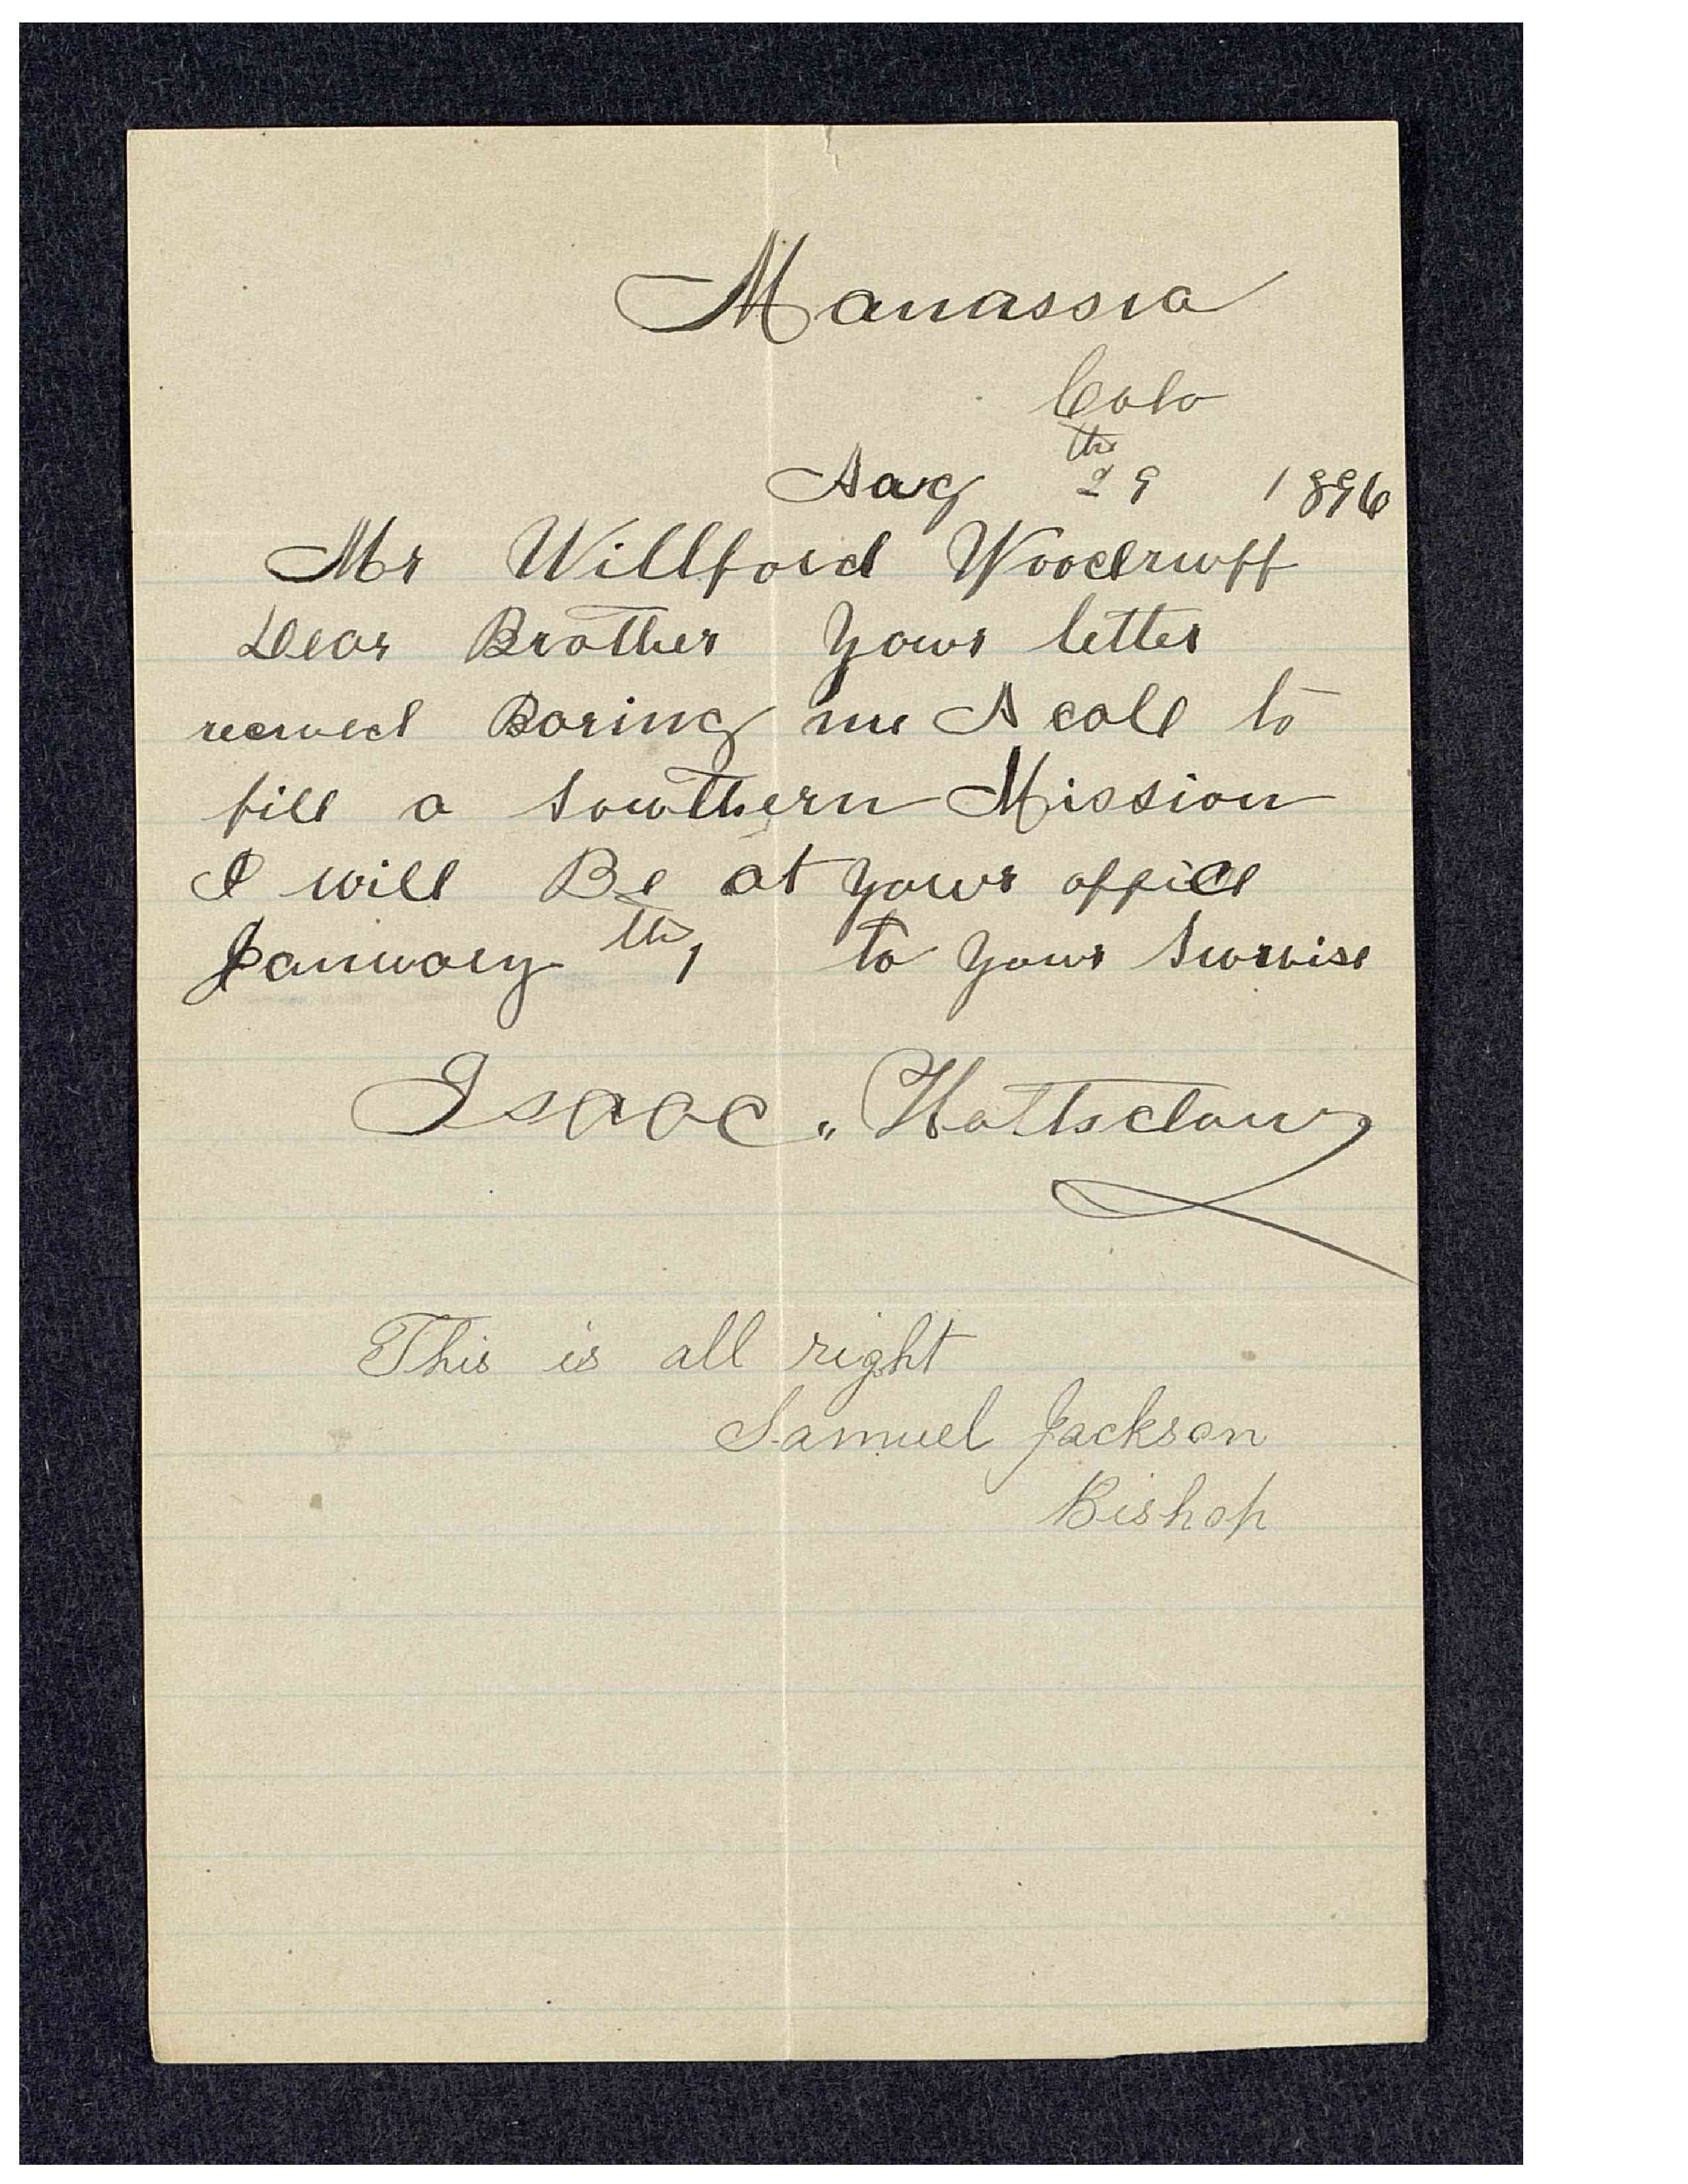 Manassia
Colo
Aug 29th 1896
Mr Willford Woodruff
Dear Brother Yours letter
recived Baring me A call to
fill a Southern Mission
I will Be at your office
January th 1 to your Survise
Isaac. Hattsclaw
This is all right
Samuel Jackson
Bishop